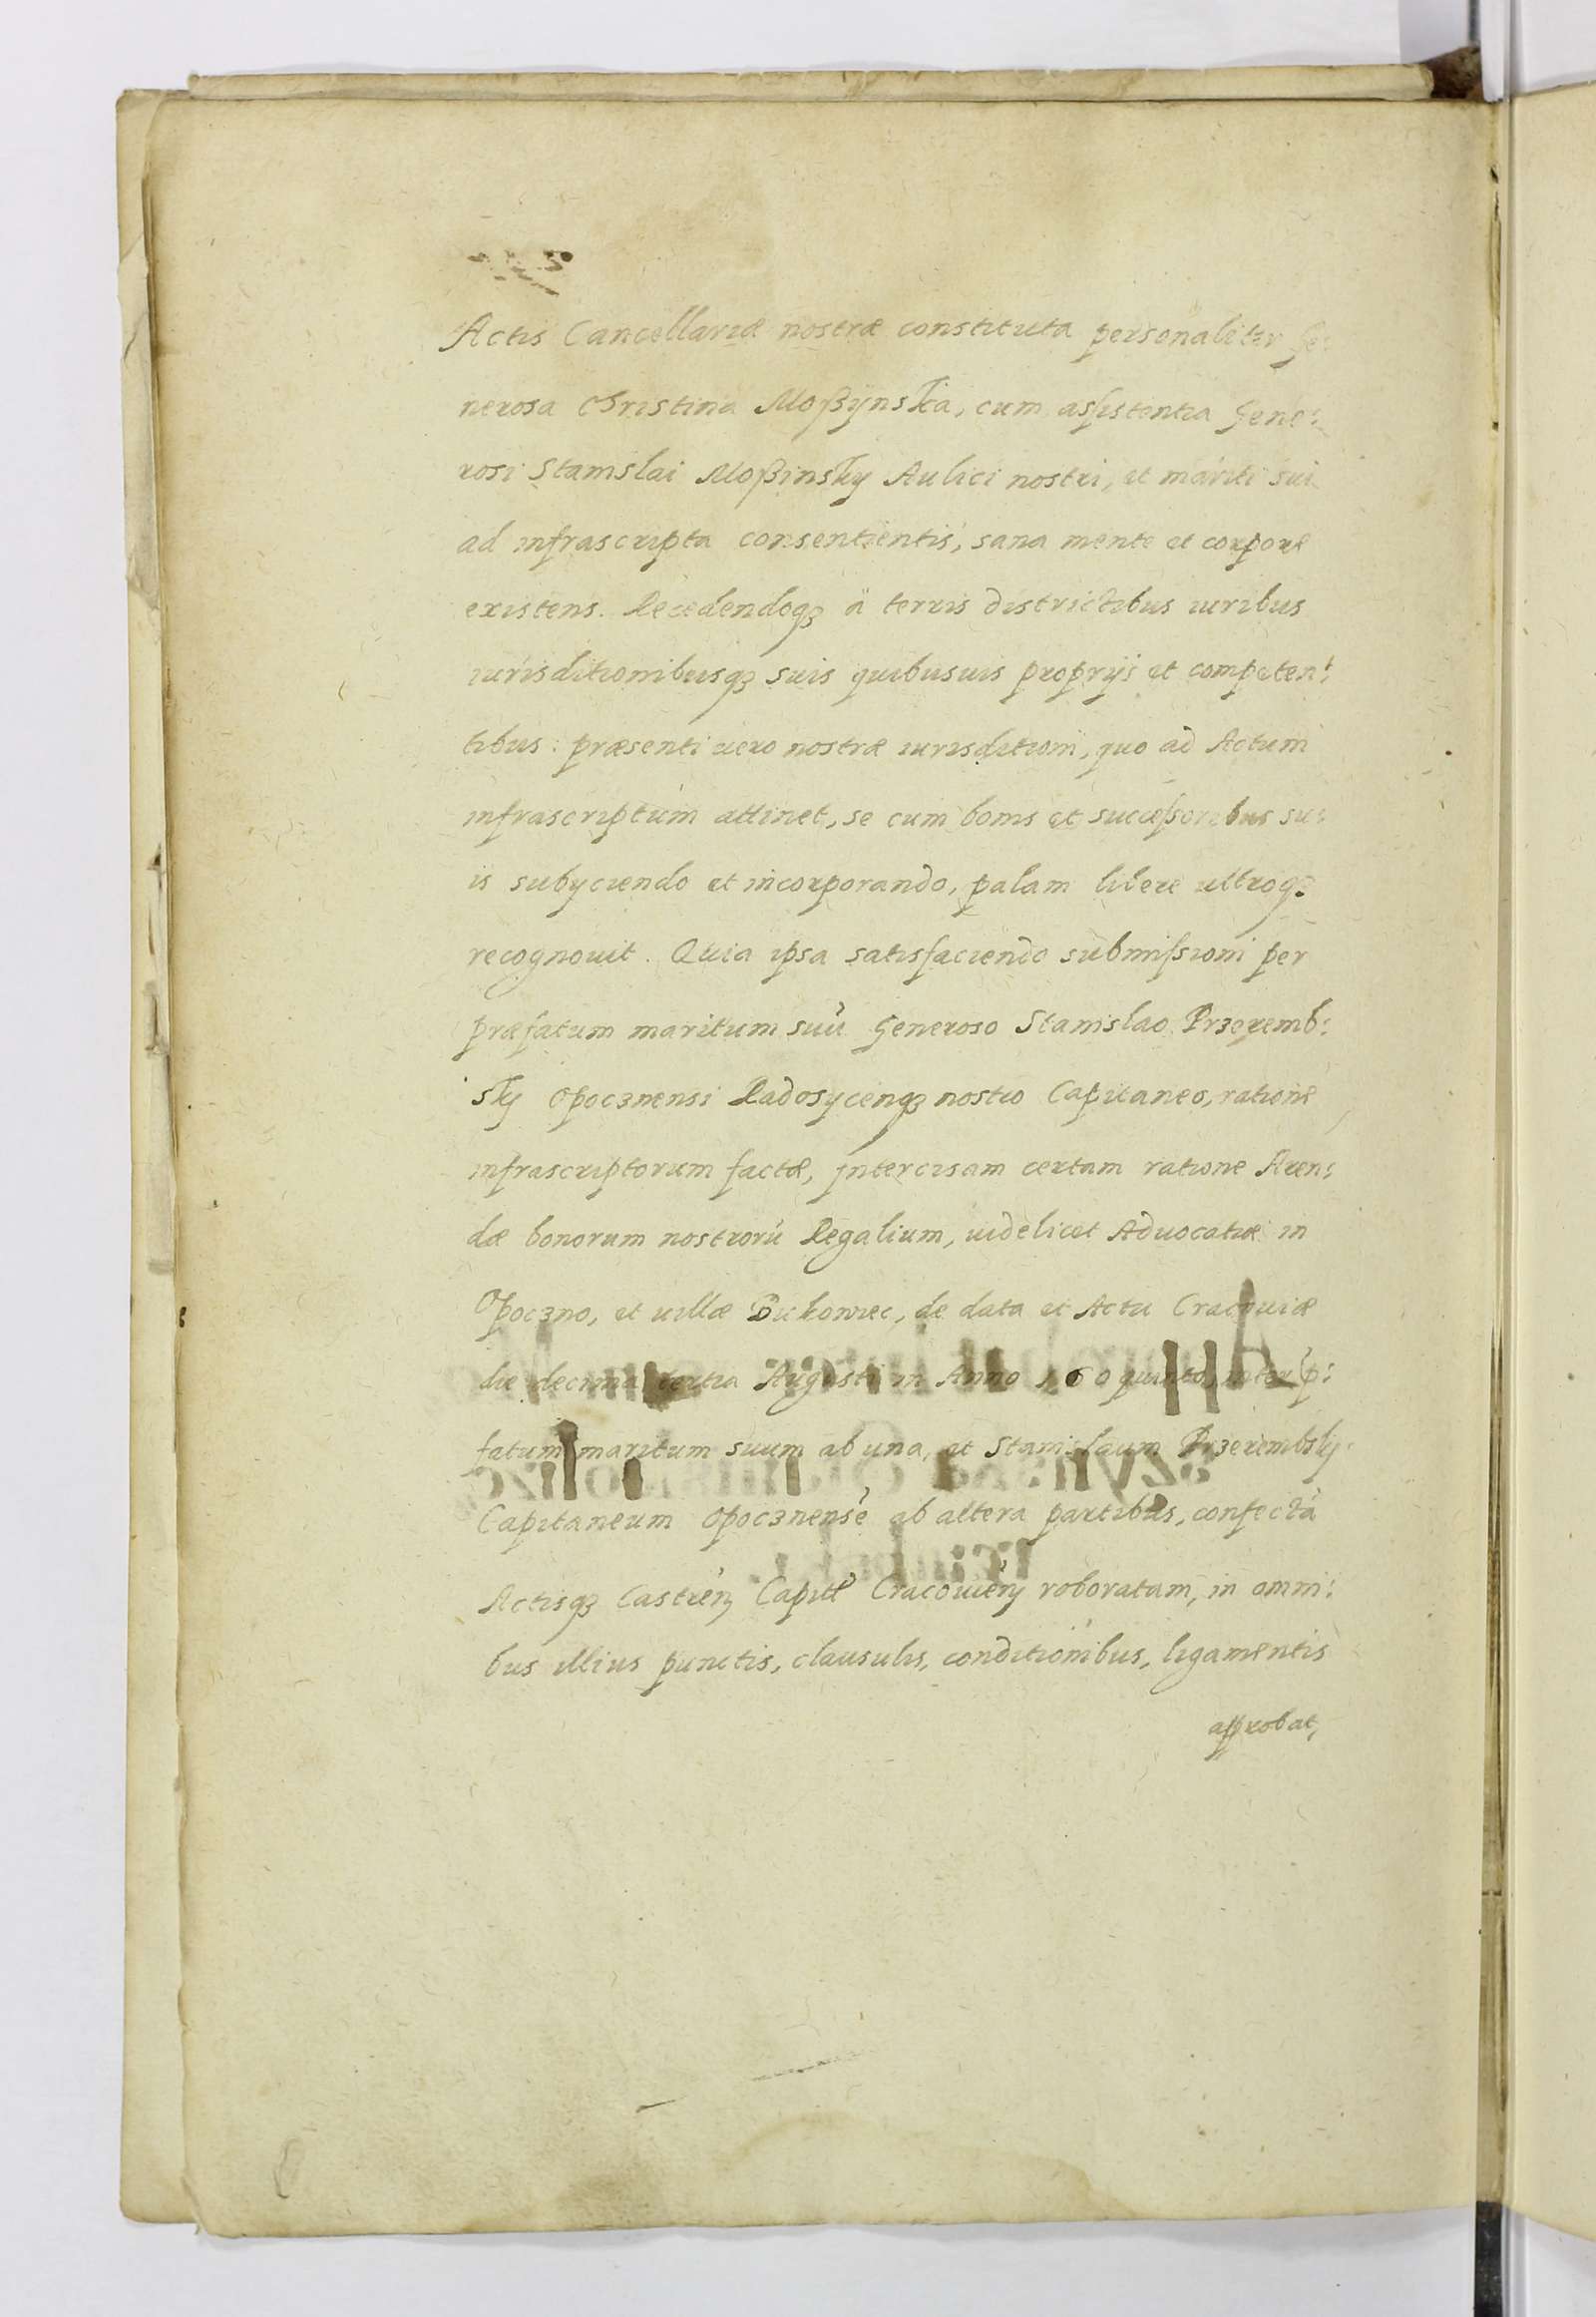 Actis Cancellariæ nostræ constituta personaliter Ge:
nerosa Christina Moßÿnska, cum assistentia Gene:
rosi Stanislai Moßinsky Aulici nostri, et mariti sui
ad infrascripta consentientis, sana mente et corpore
existens. Recedendoqꝫ à terris districtibus iuribus
iurisditionibusqꝫ suis quibusuis proprijs et competen:
tibus: præsenti uero nostræ iurisditioni, quo ad Actum
infrascriptum attinet, se cum bonis et successoribus su:
is subyciendo et incorporando, palam libere ultroqꝫ
recognouit. Quia ipsa satisfaciendo submissioni per
præfatum maritum suũ Generoso Stanislao Przeremb:
sky Opocznensi Radosycenqꝫ nostro Capitaneo, ratione
infrascriptorum factæ, Intercisam certam ratione Aren:
dæ bonorum nostrorũ Regalium, uidelicet Aduocatiæ in
Opoczno, et uillæ Bukowiec, de data et Actu Cracouiæ
die decima tertia Augusti in Anno 160 quinto, inter p̃:
fatum maritum suum ab una, et Stanislaum Przerembsky
Capitaneum Opocznensẽ ab altera partibus, confectã
Actisqꝫ Castreñ Capitł Cracouieñ roboratam, in omni:
bus illius punctis, clausulis, conditionibus, ligamentis
approbat,